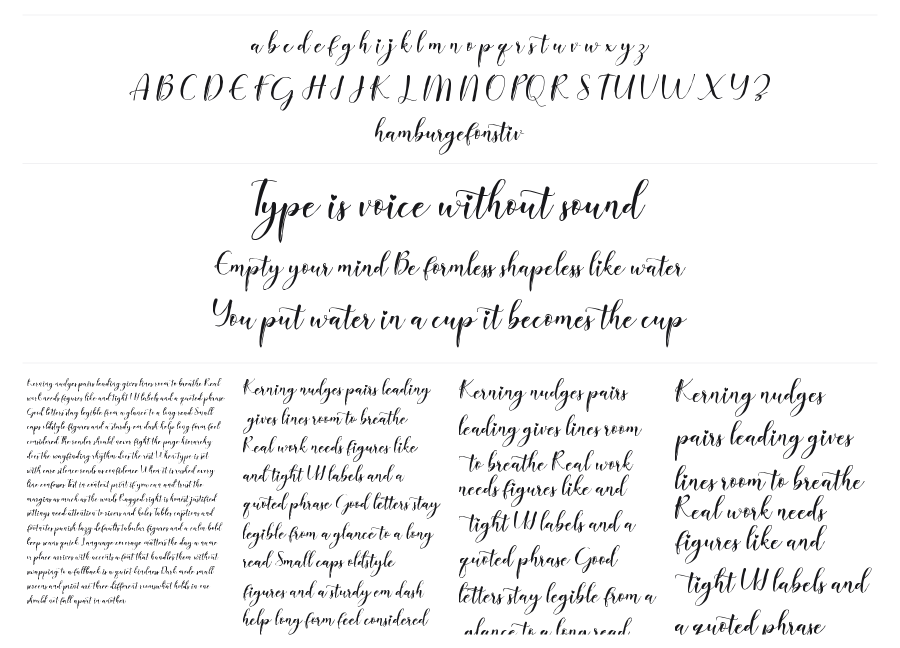 a b c d e f g h i j k l m n o p q r s t u v w x y z
A B C D E F G H I J K L M N O P Q R S T U V W X Y Z
hamburgefonstiv
Type is voice without sound
Empty your mind Be formless shapeless like water
You put water in a cup it becomes the cup
Kerning nudges pairs leading gives lines room to breathe Real
work needs figures like and tight UI labels and a quoted phrase
Good letters stay legible from a glance to a long read Small
caps oldstyle figures and a sturdy em dash help long form feel
considered The reader should never fight the page hierarchy
does the wayfinding rhythm does the rest When type is set
with care silence reads as confidence When it is rushed every
line confesses Set in context print if you can and trust the
margins as much as the words Ragged right is honest justified
settings need attention to rivers and holes Tables captions and
footnotes punish lazy defaults tabular figures and a calm bold
keep scans quick Language coverage matters the day a name
or place arrives with accents a font that handles them without
swapping to a fallback is a quiet kindness Dark mode small
screens and print are three different rooms what holds in one
should not fall apart in another
Kerning nudges pairs leading
gives lines room to breathe
Real work needs figures like
and tight UI labels and a
quoted phrase Good letters stay
legible from a glance to a long
read Small caps oldstyle
figures and a sturdy em dash
help long form feel considered
Kerning nudges pairs
leading gives lines room
to breathe Real work
needs figures like and
tight UI labels and a
quoted phrase Good
letters stay legible from a
glance to a long read
Kerning nudges
pairs leading gives
lines room to breathe
Real work needs
figures like and
tight UI labels and
a quoted phrase